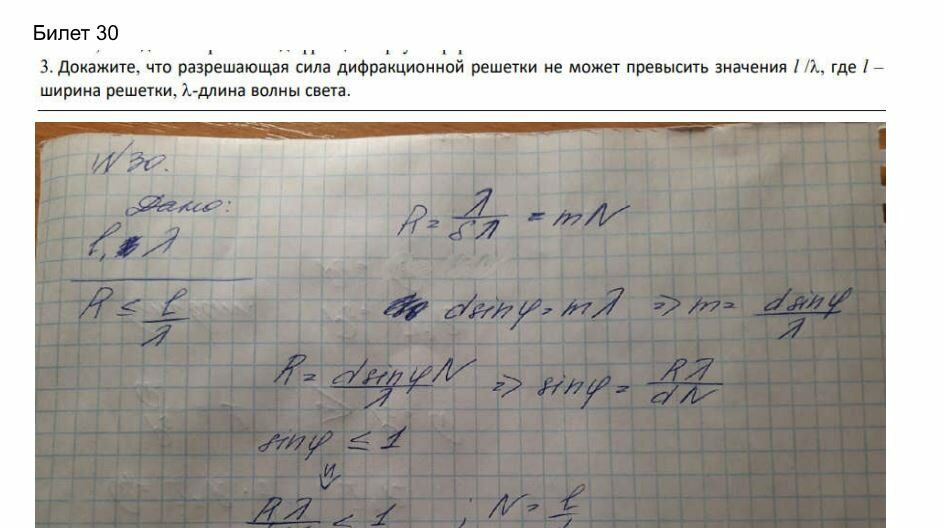 Билет 30
3. Докажите, что разрешающая сила дифракционной решетки не может превысить значения l /λ, где l –
ширина решетки, λ-длина волны света.
N 30.
Дано:
l, λ
R ≤ l/λ
R = λ/δλ = mN
dsinφ = mλ ⇒ m = dsinφ/λ
R = dsinφN/λ ⇒ sinφ = Rλ/dN
sinφ ≤ 1
⇓
Rλ ≤ 1 ; N = l